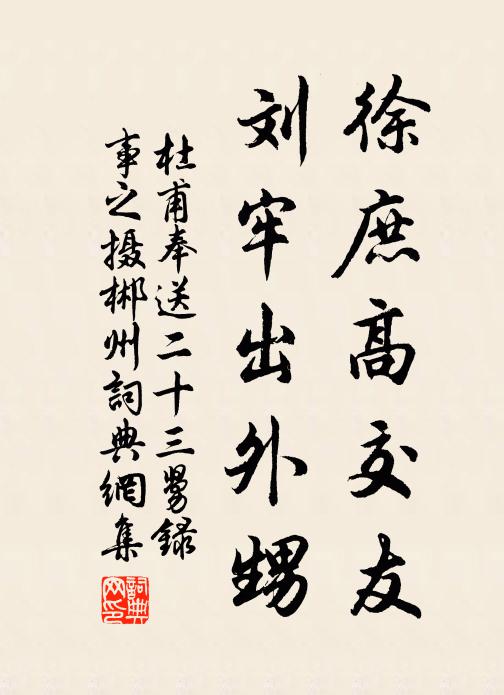 徐庶高交友
刘牢出外甥
杜甫奉送二十三舅录
事之摄郴州詞典網集
詞典网印